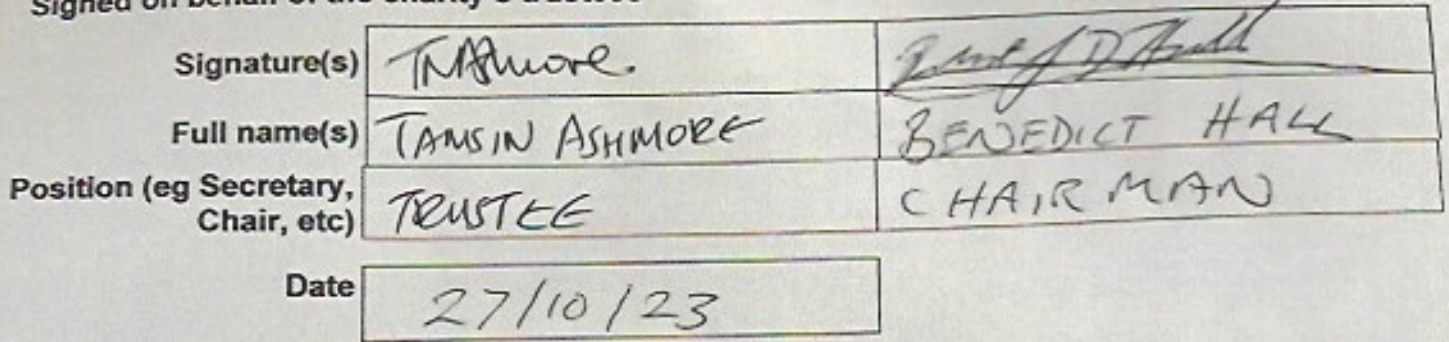 Signed on behalf of the charity's trustees
Signature(s) TNAshmore.
Full name(s) TAMSIN ASHMORE BENEDICT HALL
Position (eg Secretary, TRUSTEE CHAIRMAN
Chair, etc)
Date 27/10/23